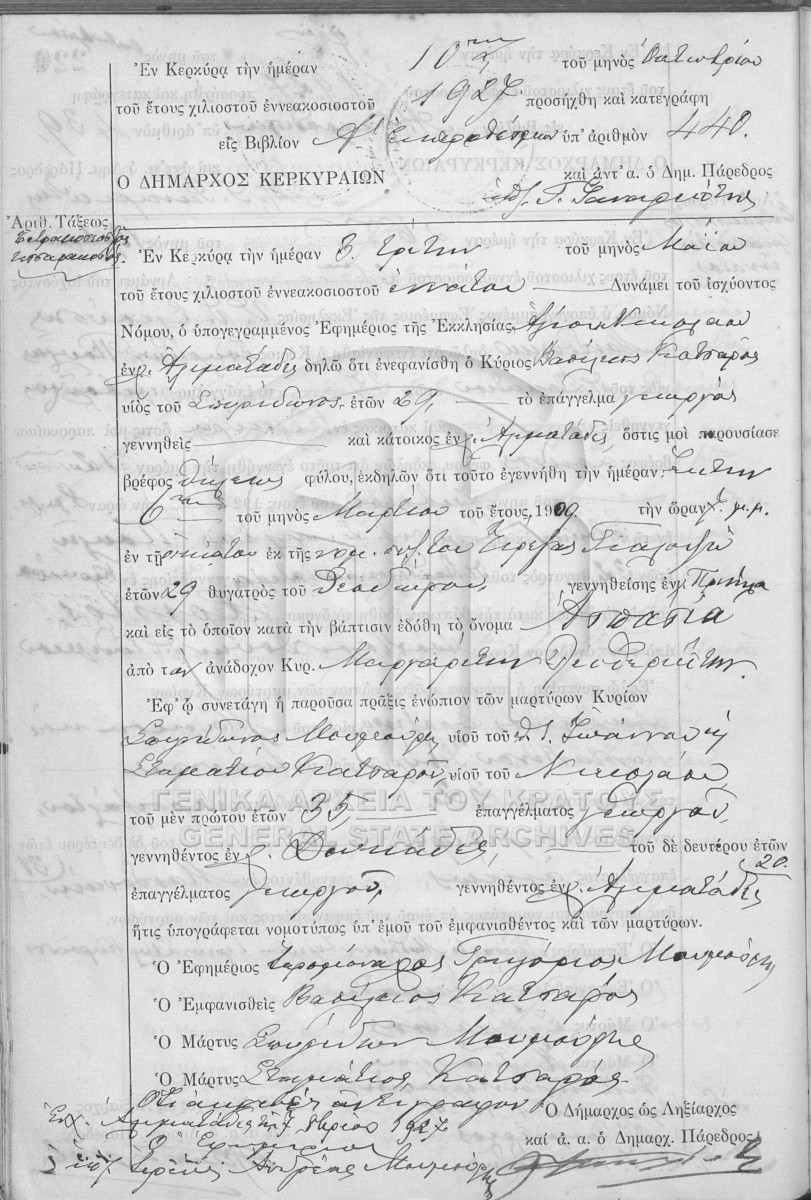 Ἐν Κερκύρᾳ τὴν ἡμέραν 10ην τοῦ μηνὸς Ὀκτωβρίου
τοῦ ἔτους χιλιοστοῦ ἐννεακοσιοστοῦ 1927 προσήχθη καὶ κατεγράφη
εἰς Βιβλίον Α' Ἐκπροθέσμων ὑπ' ἀριθμὸν 440.
Ο ΔΗΜΑΡΧΟΣ ΚΕΡΚΥΡΑΙΩΝ καὶ ἀντ' α. ὁ Δημ. Πάρεδρος
Ἀριθ. Τάξεως
Τετρακοσιοστὸς
τεσσαρακοστός.
Ἐν Κερκύρᾳ τὴν ἡμέραν 3. τρίτην τοῦ μηνὸς Μαΐου
τοῦ ἔτους χιλιοστοῦ ἐννεακοσιοστοῦ ἐννάτου Δυνάμει τοῦ ἰσχύοντος
Νόμου, ὁ ὑπογεγραμμένος Ἐφημέριος τῆς Ἐκκλησίας Ἁγίου Νικολάου
ἐν χ. Ἁρματάδες δηλῶ ὅτι ἐνεφανίσθη ὁ Κύριος Βασίλειος Κατσαρὸς
υἱὸς τοῦ Σπυρίδωνος, ἐτῶν 29, τὸ ἐπάγγελμα γεωργὸς
γεννηθεὶς καὶ κάτοικος ἐν χ. Ἁρματάδες, ὅστις μοὶ παρουσίασε
βρέφος θήλεως φύλου, ἐκδηλῶν ὅτι τοῦτο ἐγεννήθη τὴν ἡμέραν ἕκτην
6 τοῦ μηνὸς Μαρτίου τοῦ ἔτους, 1909 τὴν ὥραν π.μ.
ἐν τῇ οἰκίᾳ του ἐκ τῆς νομ. συζ. του
ἐτῶν 29 θυγατρὸς τοῦ Θεοδώρου, γεννηθείσης ἐν χ.
καὶ εἰς τὸ ὁποῖον κατὰ τὴν βάπτισιν ἐδόθη τὸ ὄνομα Ἀσπασία
ἀπὸ τὴν ἀνάδοχον Κυρ. Μαργαρίτην
Ἐφ' ᾧ συνετάγη ἡ παροῦσα πρᾶξις ἐνώπιον τῶν μαρτύρων Κυρίων
Σπυρίδωνος Μουμούρη, υἱοῦ τοῦ Ἰωάννου ἢ
Σταματίου Κατσαροῦ, υἱοῦ τοῦ Νικολάου,
τοῦ μὲν πρώτου ἐτῶν 35, ἐπαγγέλματος γεωργοῦ,
γεννηθέντος ἐν χ. Δουκάδες, τοῦ δὲ δευτέρου ἐτῶν 20.
ἐπαγγέλματος γεωργοῦ, γεννηθέντος ἐν χ. Ἁρματάδες
ἥτις ὑπογράφεται νομοτύπως ὑπ' ἐμοῦ τοῦ ἐμφανισθέντος καὶ τῶν μαρτύρων.
Ὁ Ἐφημέριος Ἱερομόναχος Γρηγόριος Μουμούρης
Ὁ Ἐμφανισθεὶς Βασίλειος Κατσαρός
Ὁ Μάρτυς Σπυρίδων Μουμούρης
Ὁ Μάρτυς Σταμάτιος Κατσαρός
Ὅτι ἀκριβὲς ἀντίγραφον
Ἐν χ. Ἁρματάδες 7 1927
Ὁ Ἐφημέριος
Ἱερεὺς Ἀνδρέας Μουμούρης
Ὁ Δήμαρχος ὡς Ληξίαρχος
καὶ ἀ. α. ὁ Δημαρχ. Πάρεδρος
ΓΕΝΙΚΑ ΑΡΧΕΙΑ ΤΟΥ ΚΡΑΤΟΥΣ
GENERAL STATE ARCHIVES